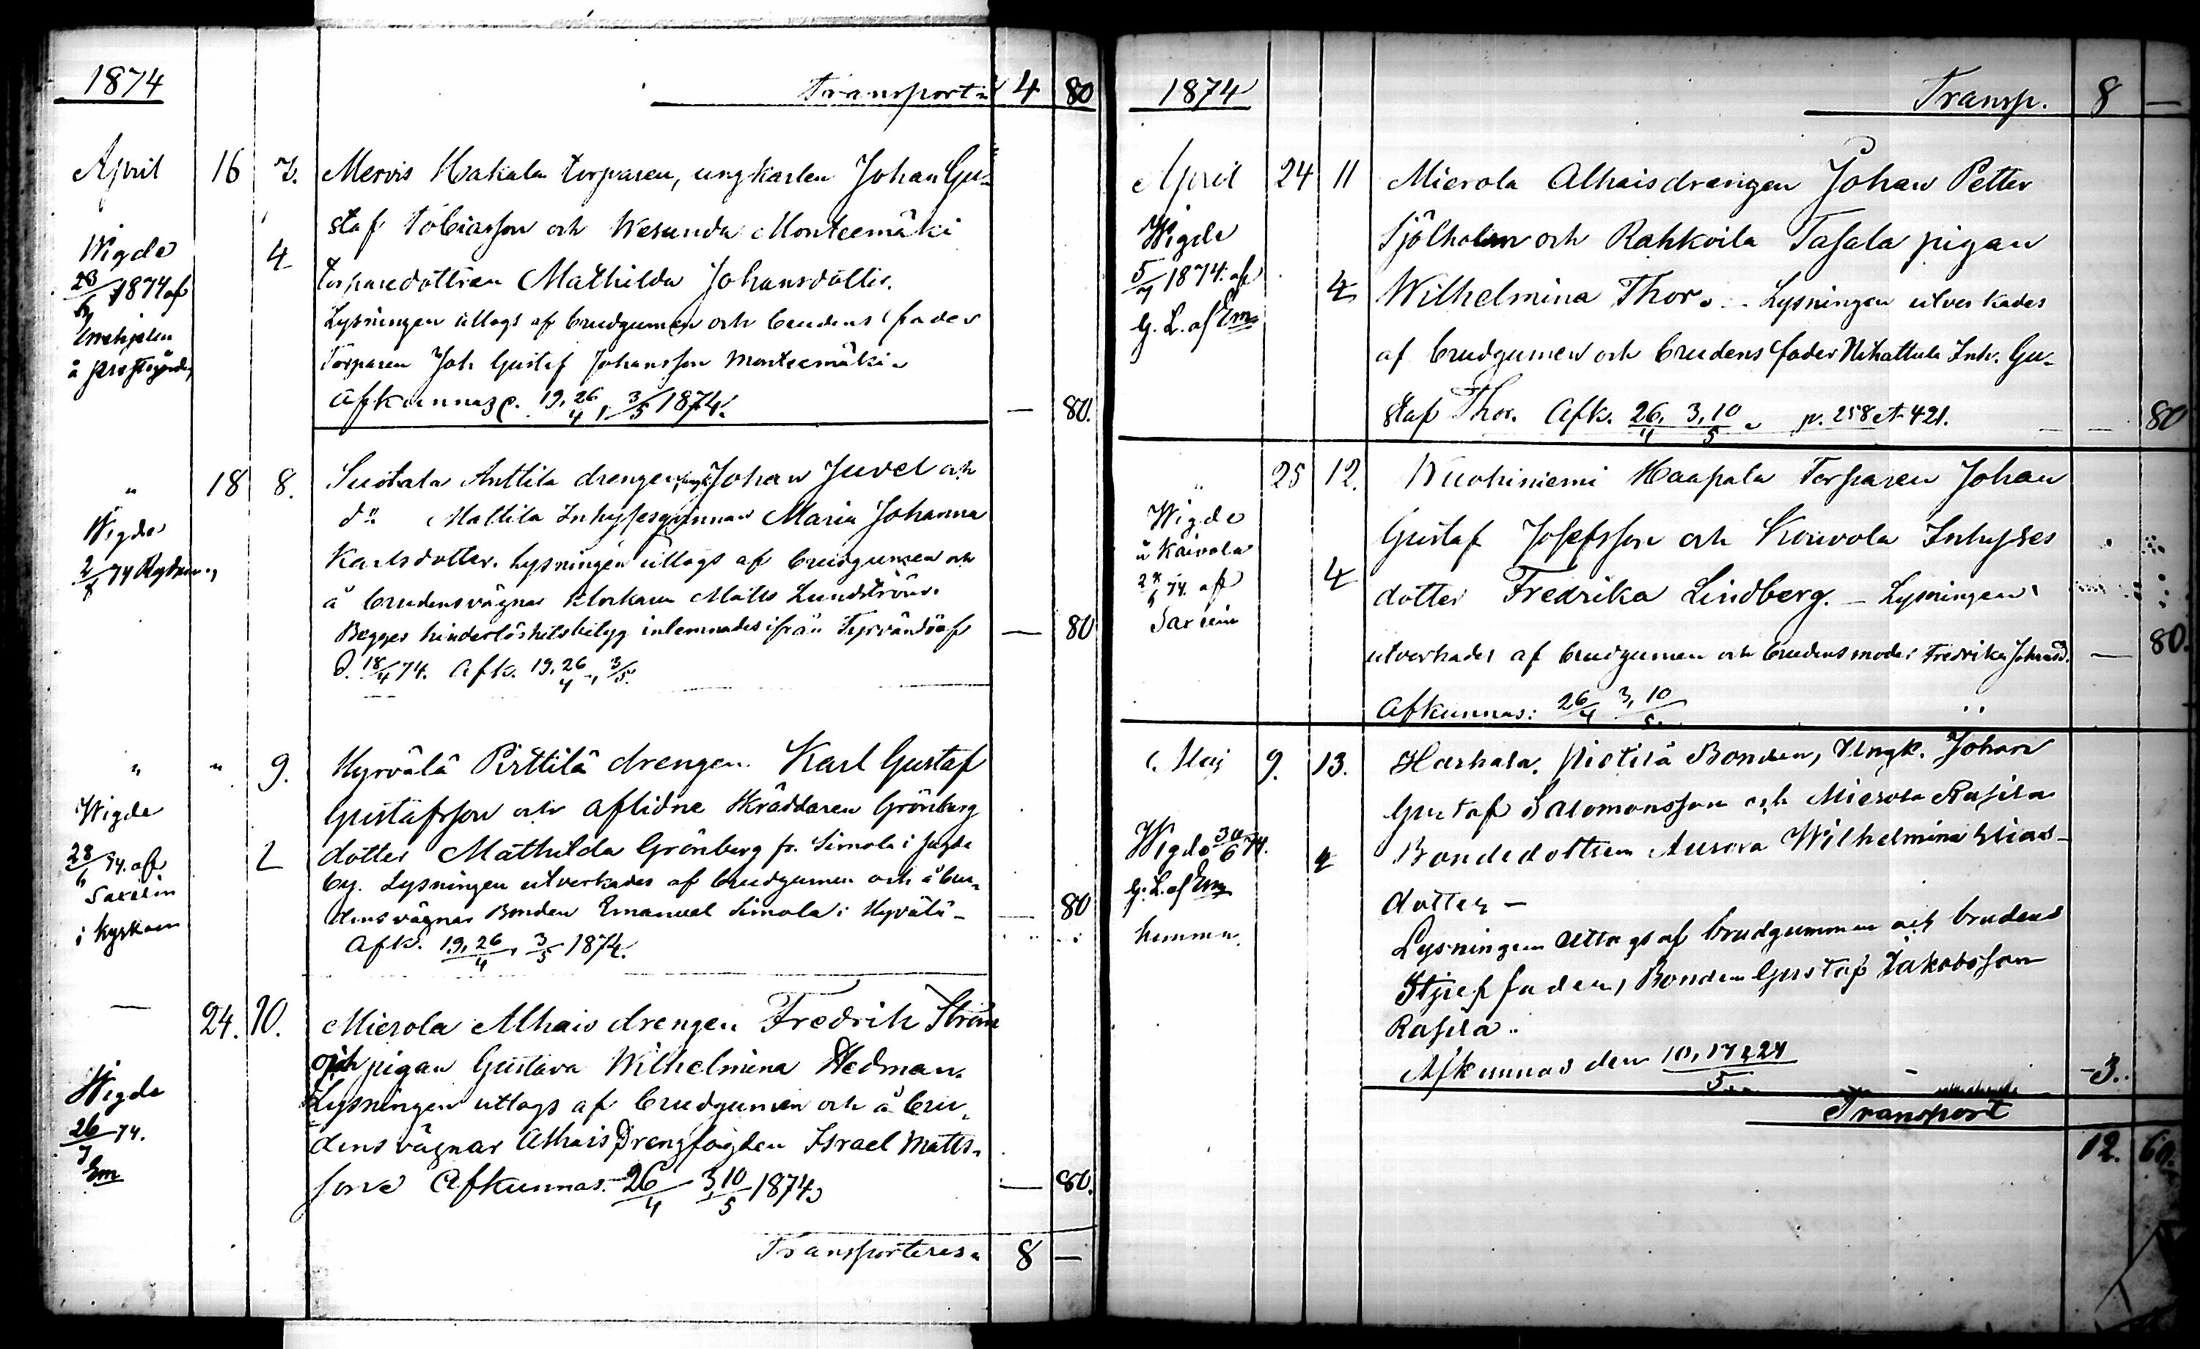 1874
Transport 4 80
April 16 7. Mervis Hakala torparen, ungkarlen Johan Gu-
staf Tobiasson och Wesunda Monteemäki
4
torparedottren Mathilda Johansdotter.
Lysningen uttogs af brudgumen och brudens fader
Torparen Joh Gustaf Johansson Monteemäki
Afkunnas d. 19, 26/4, 3/5 1874.
— 80.
Wigde
23/5 1874 af
" 18 8. Suotala Anttila drengen Johan Juvel och
do Mattila Inhysesqvinnan Maria Johanna
Karlsdotter. Lysningen uttogs af brudgumen och
å brudens vägnar klockaren Matts Lundström.
Begges hinderlöshetsbetyg inlemnades ifrån Tyrvändö af
d. 18/4 74. Afk. 19, 26/4, 3/5.
— 80
Wigde
" " 9. Hyrvälä Pirttilä drengen Karl Gustaf
Gustafsson och aflidne Skräddaren Grönberg
2 dotter Mathilda Grönberg fr. Simola i
by. Lysningen utverkades af brudgumen och å bru-
dens vägnar Bonden Emanuel Simola i Hyvälä –
Afk. 19, 26/4, 3/5 1874.
— 80
Wigde
74. af
Saxelin
i kyrkan
— 24. 10. Mierola Alhais drengen Fredrik Ström
och pigan Gustava Wilhelmina Hedman.
Lysningen uttogs af brudgumen och å bru-
dens vägnar Alhais Drengfogden Israel Matts-
son Afkunnas. 26/4 3, 10/5 1874
— 80.
Wigde
26/7 74.
Em
Transporteres 8 —
1874
Transp. 8 —
April 24 11 Mierola Alhaisdrengen Johan Petter
Sjölholm och Rahkoila Tasala pigan
4 Wilhelmina Thor. – Lysningen utverkades
af brudgumen och brudens fader Nihattula Inh. Gu-
staf Thor. Afk. 26/4, 3, 10/5 p. 258 et 421.
— 80
Wigde
5/7 1874. af
G. L. af Em
25 12. Wuohiniemi Haapala Torparen Johan
Gustaf Josefsson och Kouvola Inhyses
4 dotter Fredrika Lindberg. – Lysningen
utverkades af brudgumen och brudens moder Fredrika Johansd.
— 80.
Afkunnas: 26/4 3, 10/5
Wigde
å Kaivola
74. af
Saxelin
Maj 9. 13. Harhala Pietilä Bonden, Ungk. Johan
Gustaf Salomonsson och Mierola Rasila
4 Bondedottren Aurora Wilhelmina Elias-
dotter –
Lysningen uttogs af brudgummen och brudens
Styffadren, Bonden Gustaf Jakobsson
Rasila.
Afkunnas den 10, 17 & 24/5
3.
Wigde 74.
G. L. af Em
hemma.
Transport
12. 60.